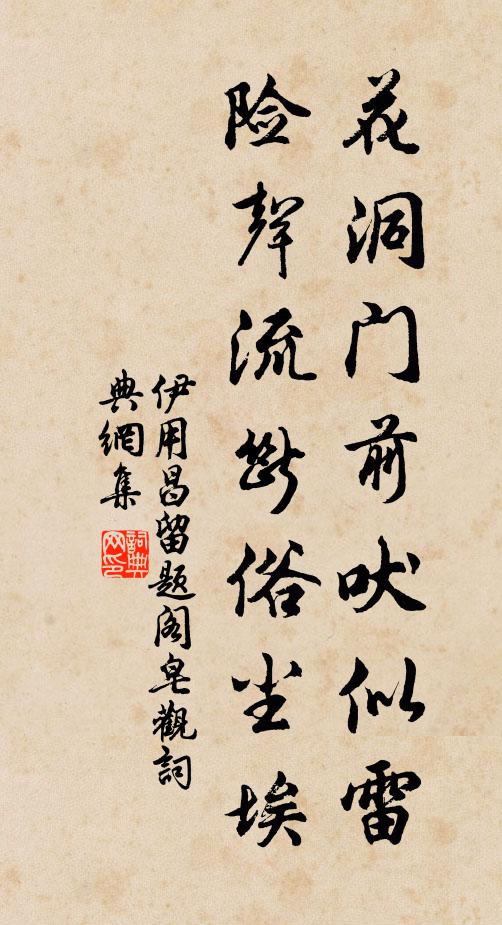 花洞门前吠似雷
险声流断俗尘埃
伊用昌留题阁皂观词
典網集
詞典网印